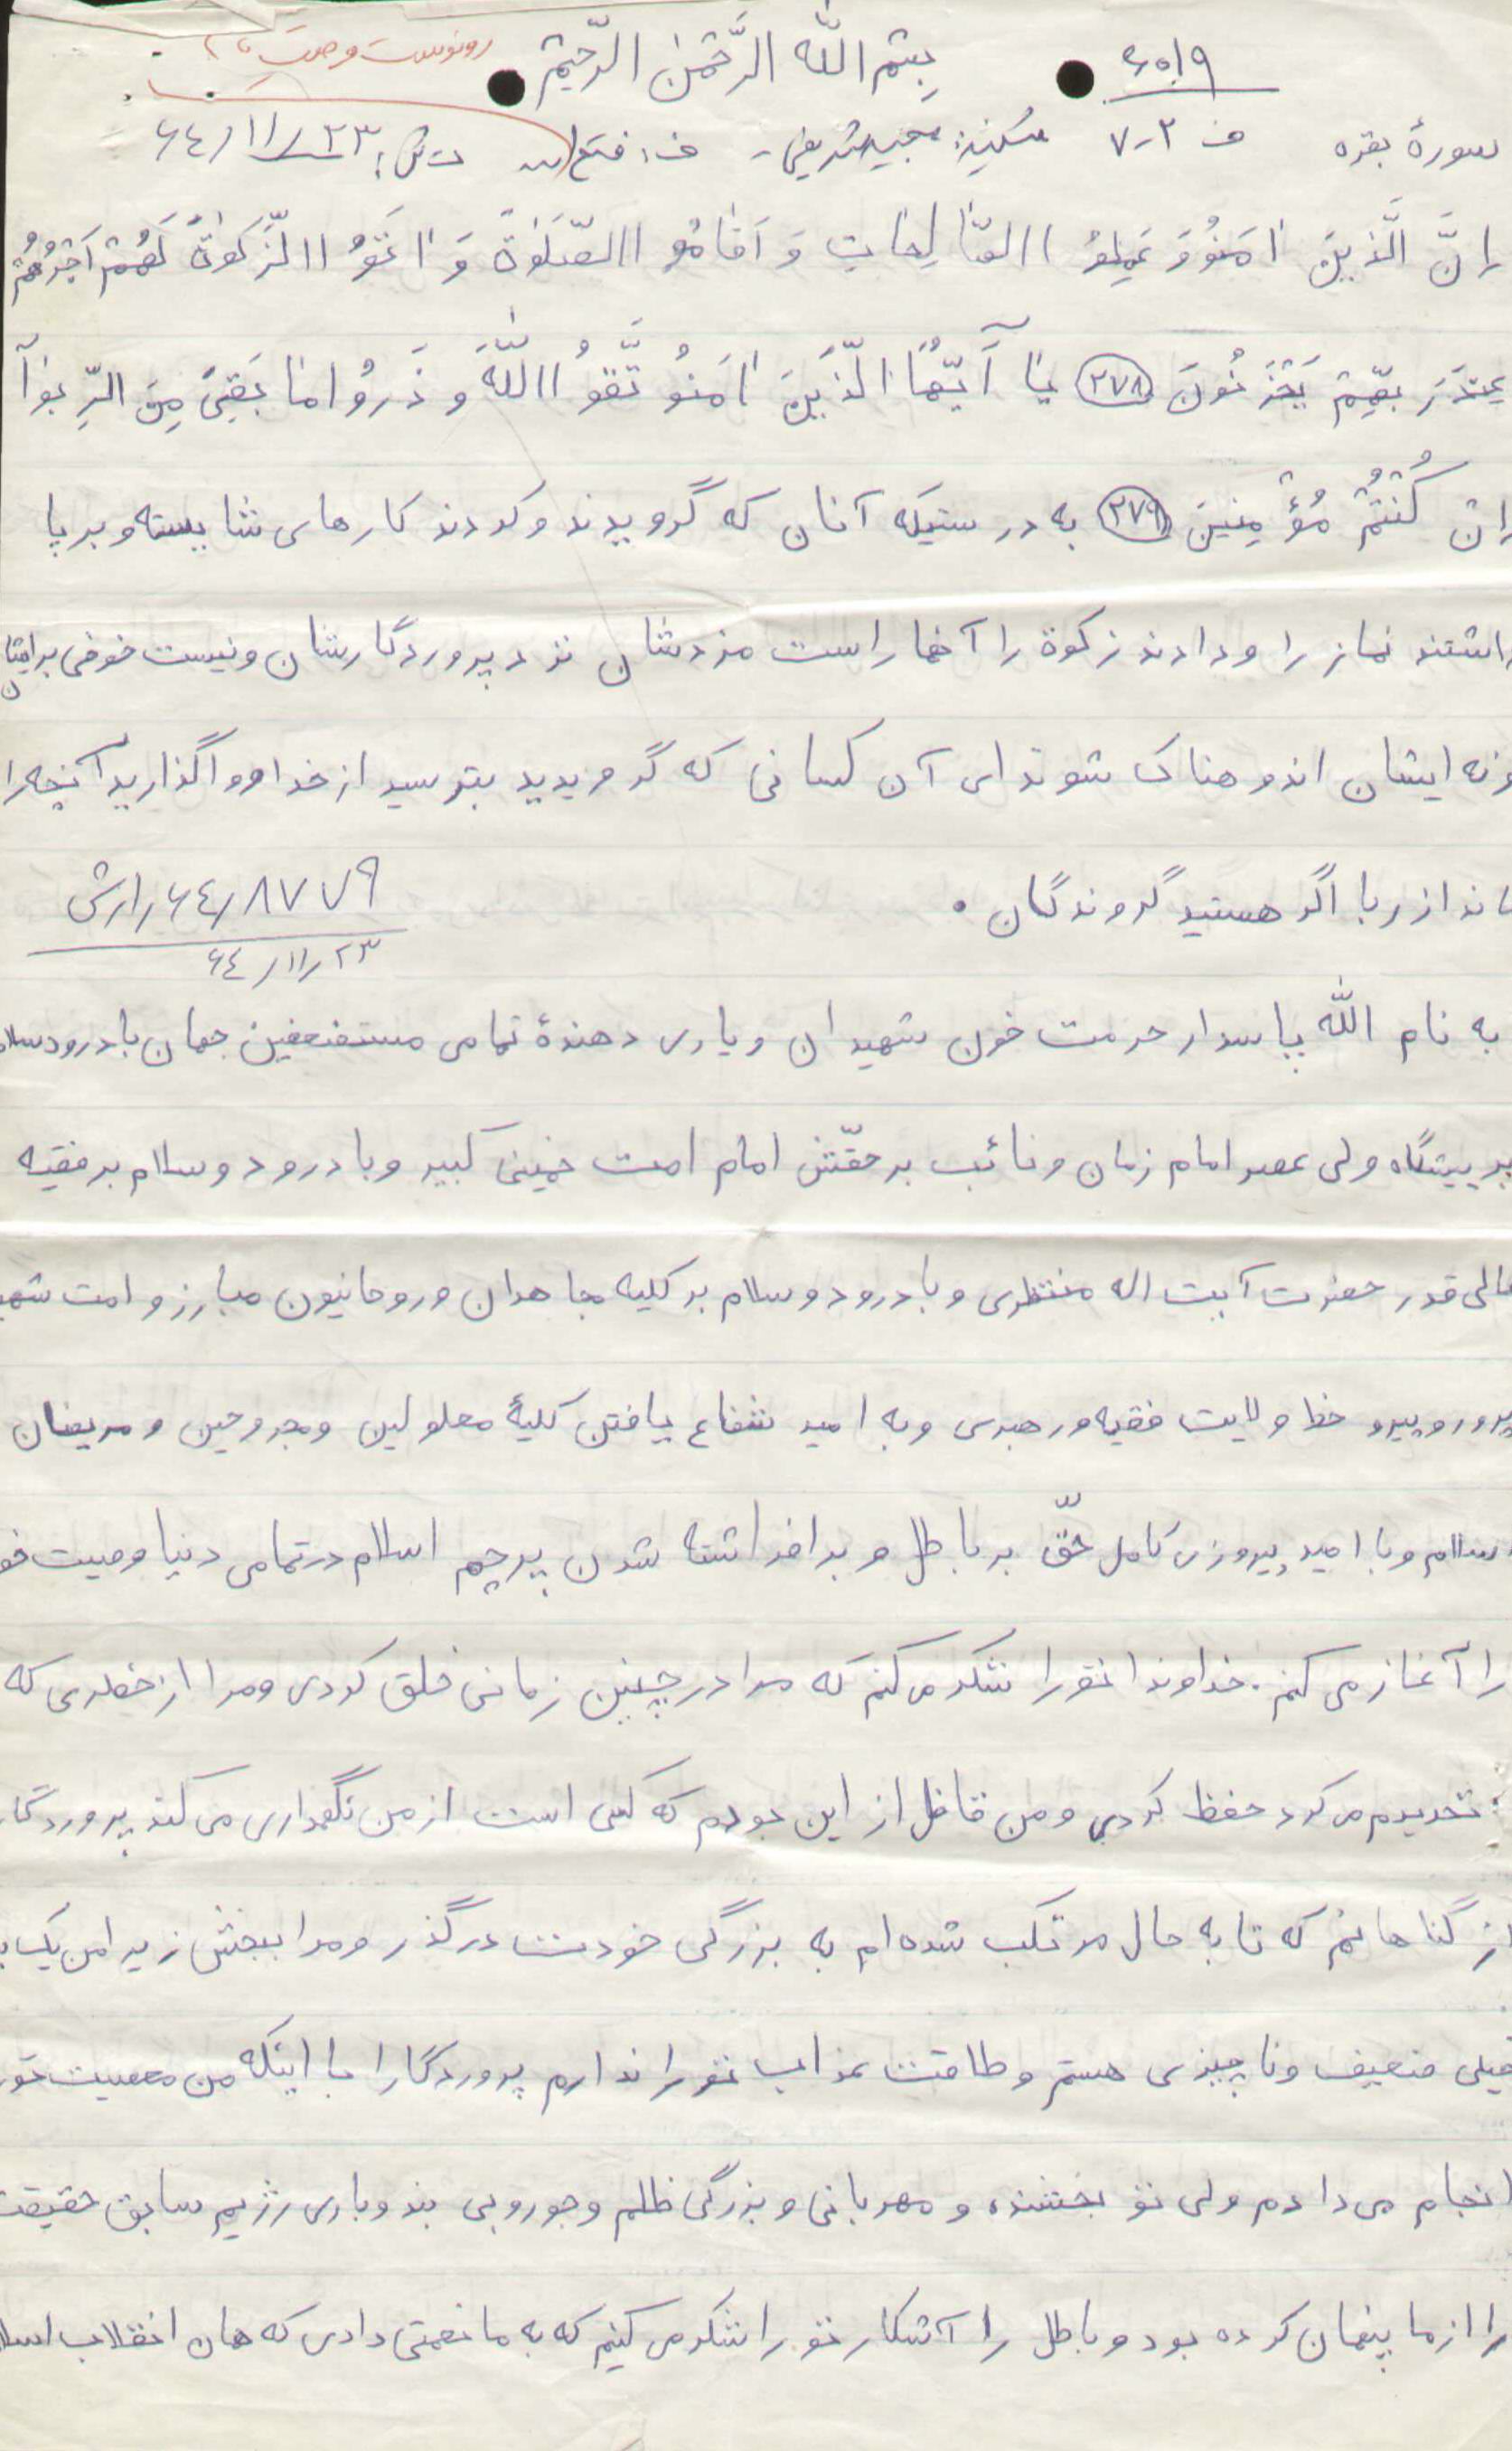 رونوست وصیت
بِسْمِ اللّٰهِ الرَّحْمٰنِ الرَّحِيْمْ
۶۰۱۹
سورهٔ بقره ف ۲-۷ ف: فتح ت ش: ۶۴/۱۱/۲۳
اِنَّ الَّذینَ اٰمَنُوُ وَ عَمِلوُ االصّٰالِحٰاتِ وَ اَقٰامُو االصَّلَوٰةَ وَ اٰتَوُ االزَّکَوٰةَ لَهُمْ اَجْرُهُمْ
یَحْزَنُونَ (۲۷۸) یٰا اَیُّهَا الَّذینَ اٰمَنوُ تَّقوُ االلّٰهَ وَ ذَروُا مٰا بَقِیَ مِنَ الرِّبوٰآ
اِن کُنْتُمْ مُؤْمِنینَ (۲۷۹) به درستیکه آنان که گرویدند و کردند کارهای شایسته و برپا
داشتند نماز را و دادند زکوة را آنها راست مزدشان نزد پروردگارشان و نیست خوفی برایشان
ونه ایشان اندوهناک شوند ای آن کسانی که گرویدید بترسید از خدا و واگذارید آنچه را
ماند از ربا اگر هستید گروندگان .
۶۴/۸۷۷۹
۶۴/۱۱/۲۳
به نام اللّٰه پاسدار حرمت خون شهیدان و یاری دهندهٔ تمامی مستضعفین جهان با درود و سلام
بر پیشگاه ولی عصر امام زمان و نائب بر حقّش امام امت خمینی کبیر و با درود و سلام بر فقیه
عالی قدر حضرت آیت اله منتظری و با درود و سلام بر کلیه مجاهدان و روحانیون مبارز و امت شهید
پرور و پیرو خط ولایت فقیه و رهبری و به امید شفاع یافتن کلیهٔ معلولین و مجروحین و مریضان
اسلام و با امید پیروزی کامل حقّ بر باطل و بر افراشته شدن پرچم اسلام در تمامی دنیا وصیت خو
را آغاز می کنم . خداوندا تورا شکر می کنم که مرا در چنین زمانی خلق کردی و مرا از خطری که
تهدیدم می کرد حفظ کردی و من غافل از این بودم که کسی است از من نگهداری می کند پروردگار
از گناهانم که تا به حال مرتکب شده ام به بزرگی خودت در گذر و مرا ببخش زیرا من یک
خیلی ضعیف و ناچیزی هستم و طاقت عذاب تو را ندارم پروردگارا با اینکه من معصیت تور
انجام می دادم ولی تو بخشنده و مهربانی و بزرگی ظلم و جور و بی بند و باری رژیم سابق حقیقت
را از ما پنهان کرده بود و باطل را آشکار تو را شکر می کنیم که به ما نعمتی دادی که همان انقلاب اسلا